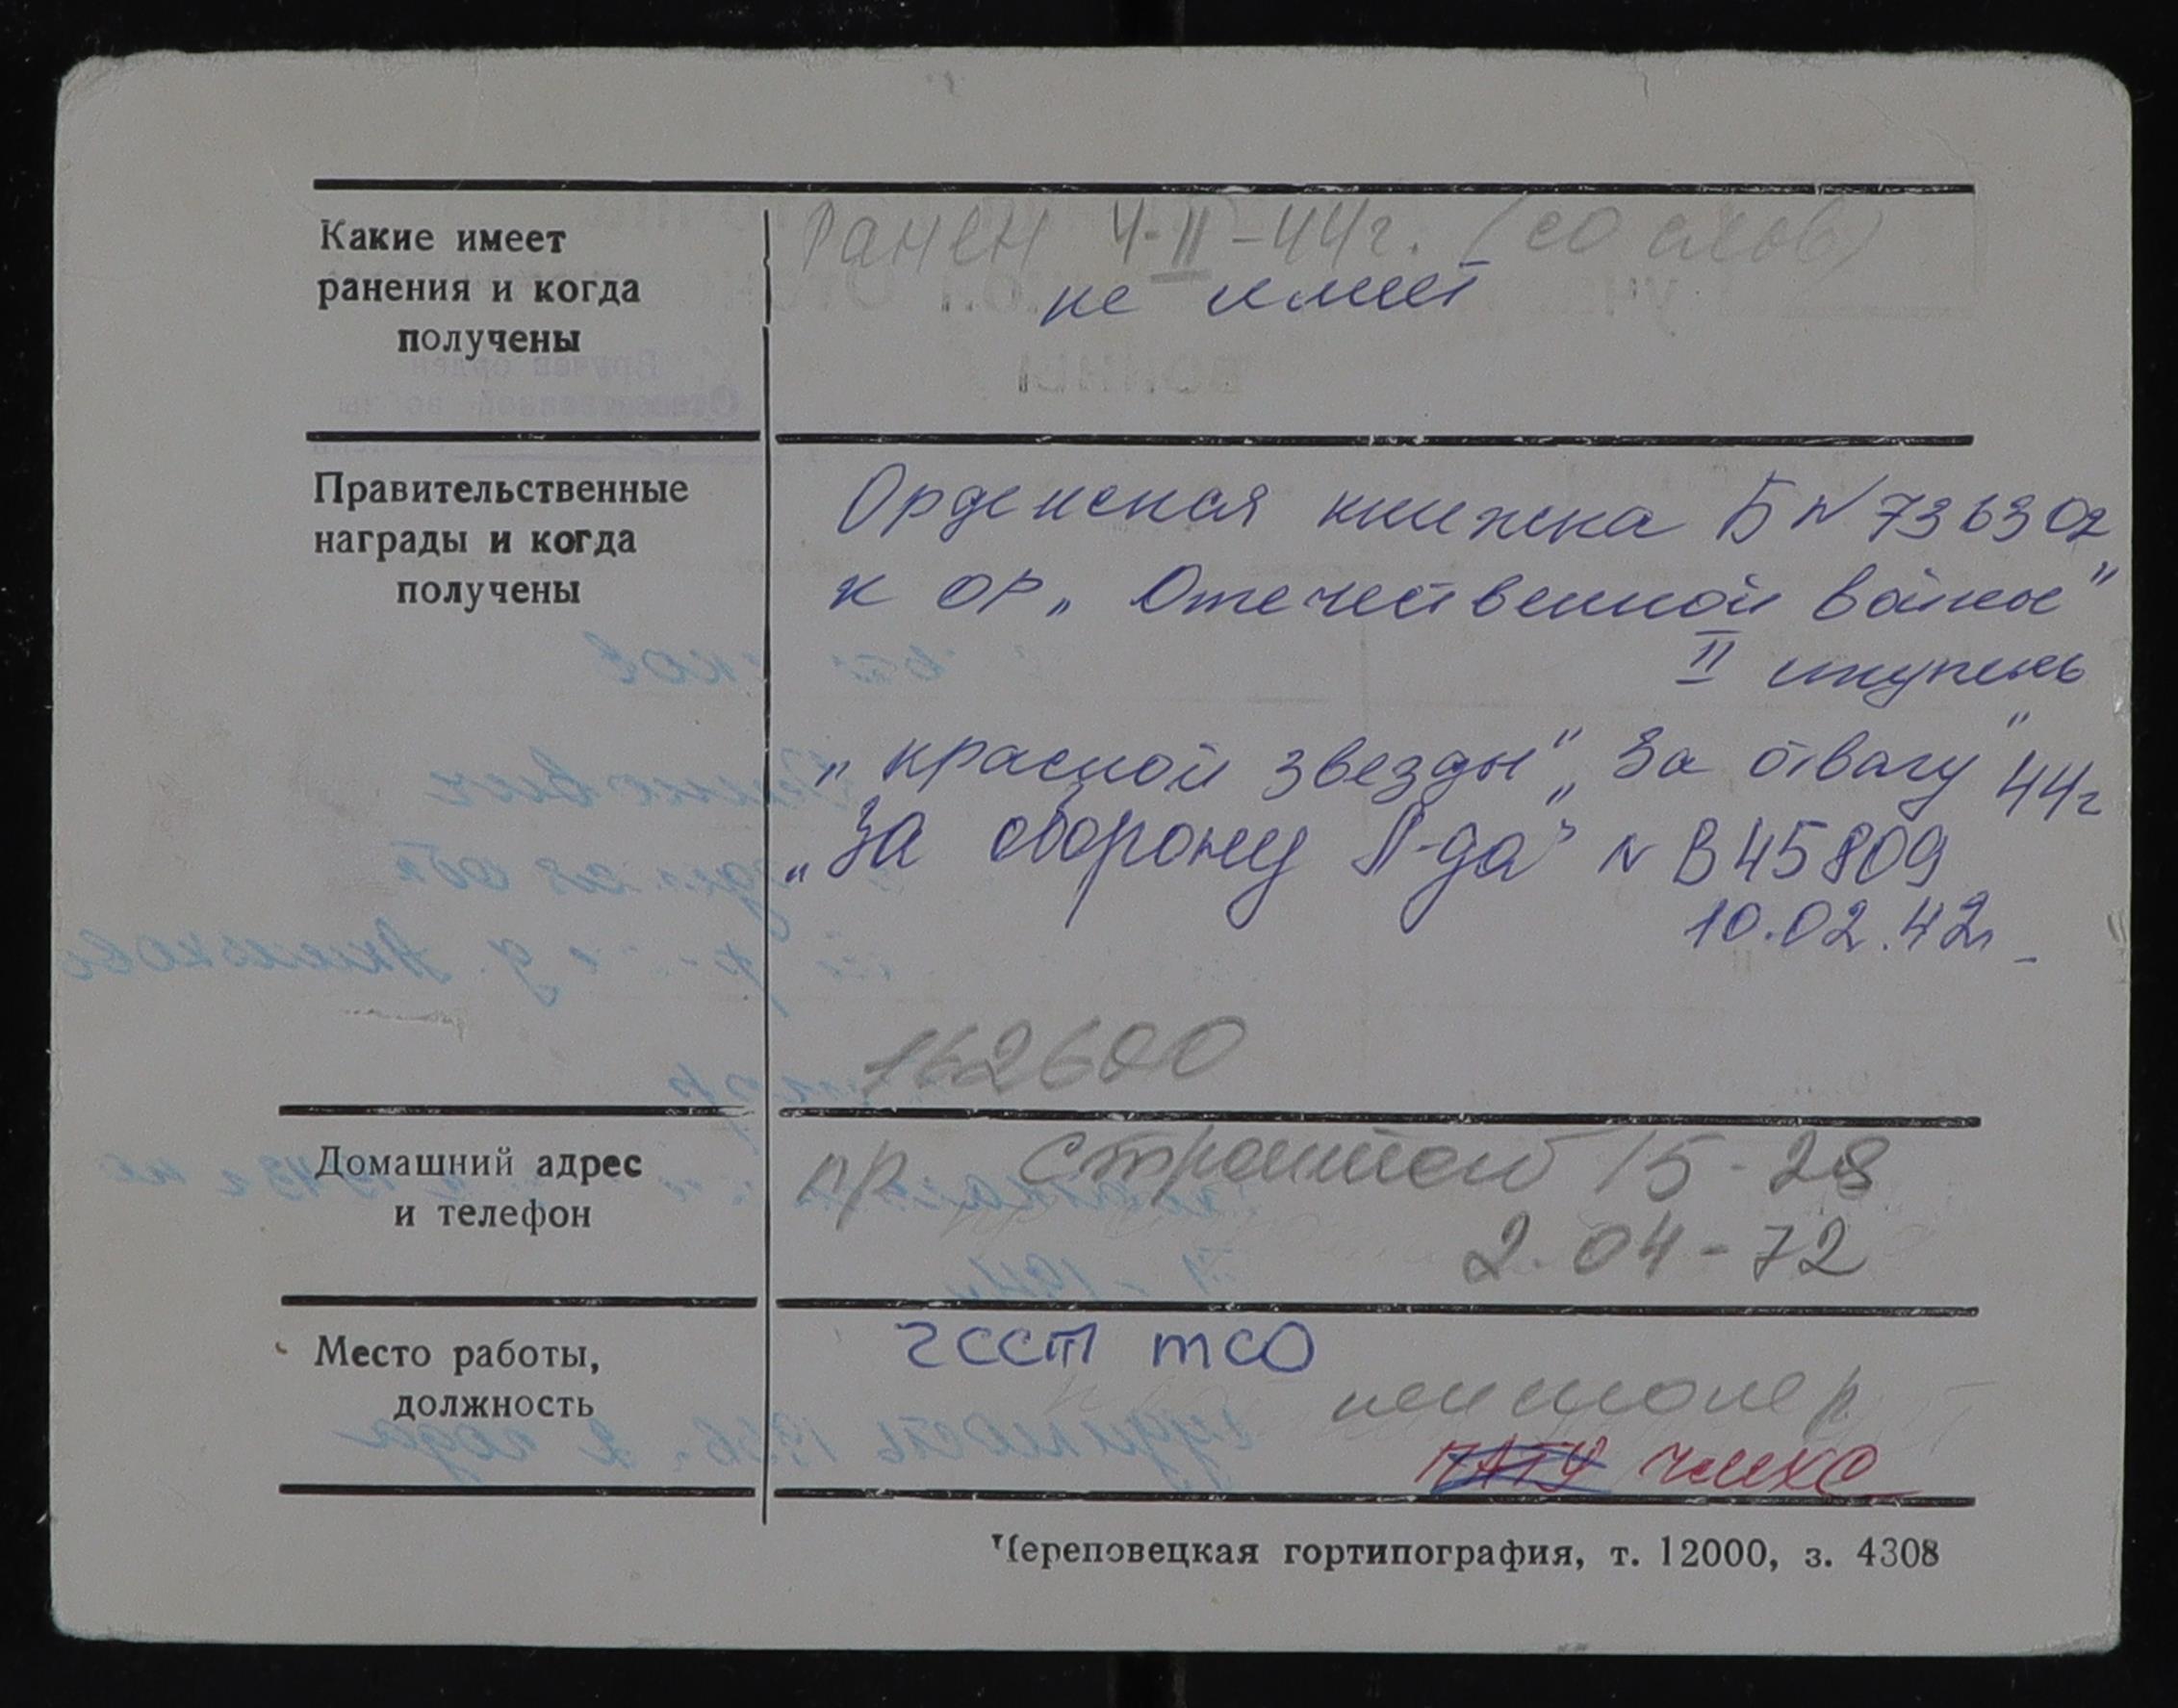 Какие имеет
ранения и когда
получены
Ранен 4-II-44г. (со слов)
не имеет
Правительственные
награды и когда
получены
Орденская книжка Б N 736302
к ор „Отечественной войны"
II степень
„красной звезды" „За отвагу" 44г
„За оборону Л-да" N В45809
10.02.42г
162600
Домашний адрес
и телефон
пр Строителей 15-28
2-04-72
Место работы,
должность
ЧССТП ТСО
пенсионер
ПАТУ
Череповецкая гортипография, т. 12000, з. 4308